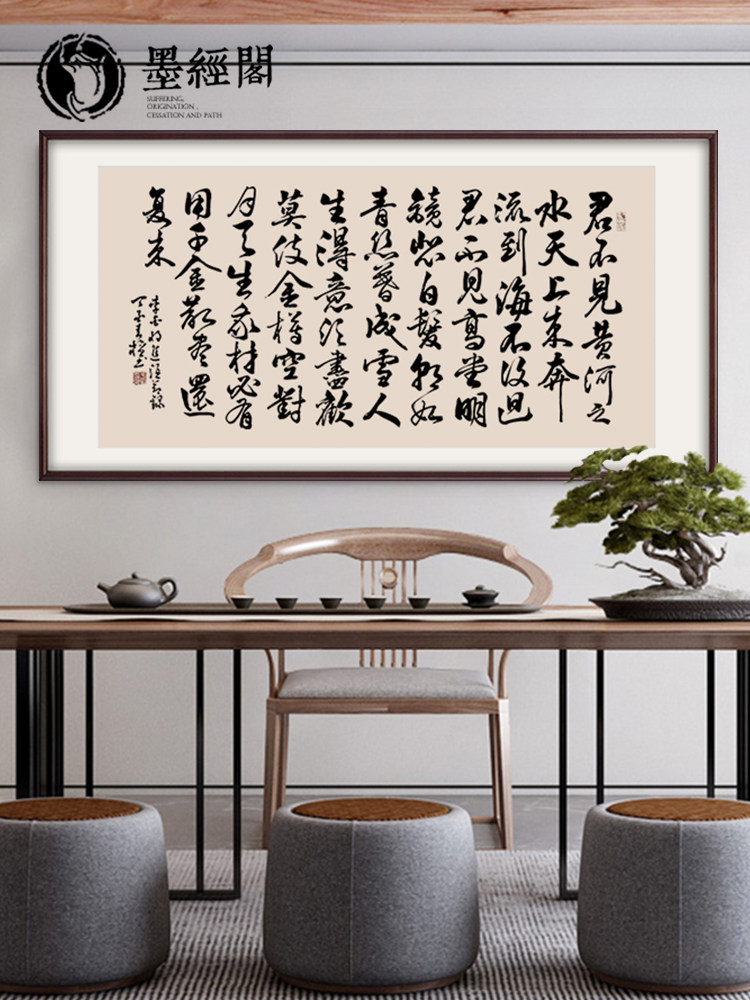 墨經閣
SUFFERING,
ORIGINATION,
CESSATION AND PATH
君不見黃河之
水天上來奔
流到海不復迴
君不見高堂明
鏡悲白髮朝如
青絲暮成雪人
生得意須盡歡
莫使金樽空對
月天生我材必有
用千金散盡還
复來
李白將進酒節錄